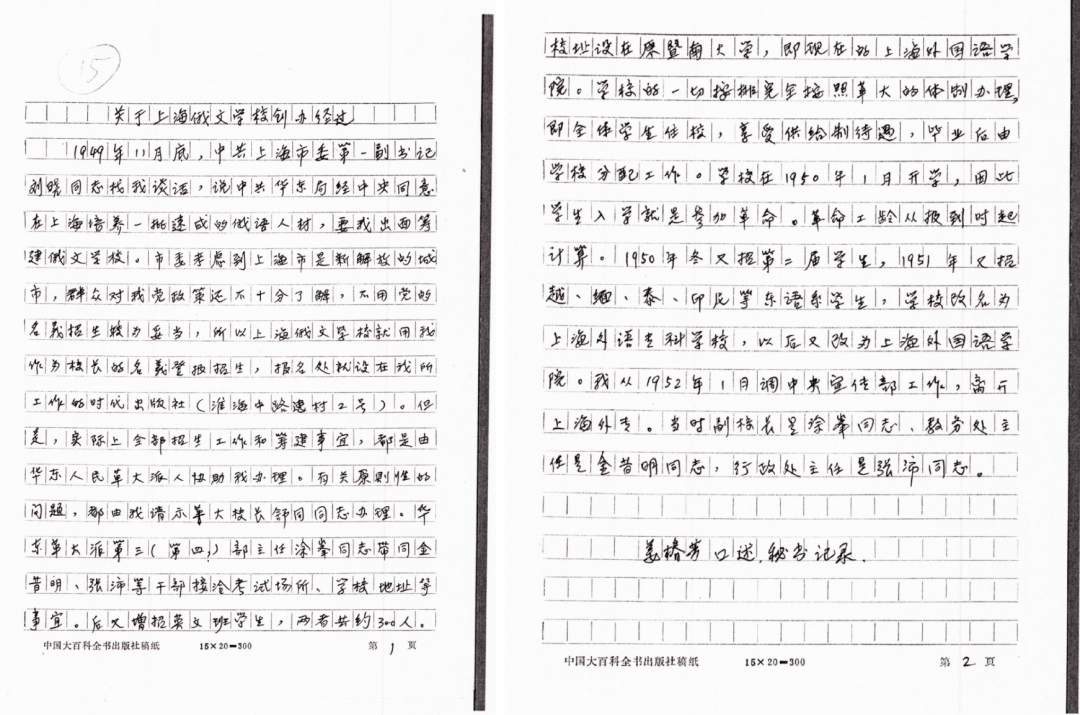 15
关于上海俄文学校创办经过
1949年11月底，中共上海市委第一副书记
刘晓同志找我谈话，说中共华东局经中央同意
在上海培养一批速成的俄语人材，要我出面筹
建俄文学校。市委考虑到上海市是新解放的城
市，群众对我党政策还不十分了解，不用党的
名义招生较为妥当，所以上海俄文学校就用我
作为校长的名义登报招生，报名处就设在我所
工作的时代出版社（淮海中路建村2号）。但
是，实际上全部招生工作和筹建事宜，都是由
华东人民革大派人协助我办理。有关原则性的
问题，都由我请示革大校长舒同同志办理。华
东革大派第三（第四）部主任涂峯同志带同金
昔明、张沛等干部接洽考试场所、学校地址等
事宜。后又增招英文班学生，两者共约300人。
中国大百科全书出版社稿纸 15×20=300 第1页
校址设在原暨南大学，即现在的上海外国语学
院。学校的一切按排完全按照革大的体制办理，
即全体学生住校，享受供给制待遇，毕业后由
学校分配工作。学校在1950年1月开学，因此
学生入学就是参加革命。革命工龄从报到时起
计算。1950年冬又招第二届学生，1951年又招
越、缅、泰、印尼等东语系学生，学校改名为
上海外语专科学校，以后又改为上海外国语学
院。我从1952年1月调中央宣传部工作，离开
上海外专。当时副校长是涂峯同志、教务处主
任是金昔明同志，行政处主任是张沛同志。
姜椿芳口述，秘书记录.
中国大百科全书出版社稿纸 15×20=300 第2页